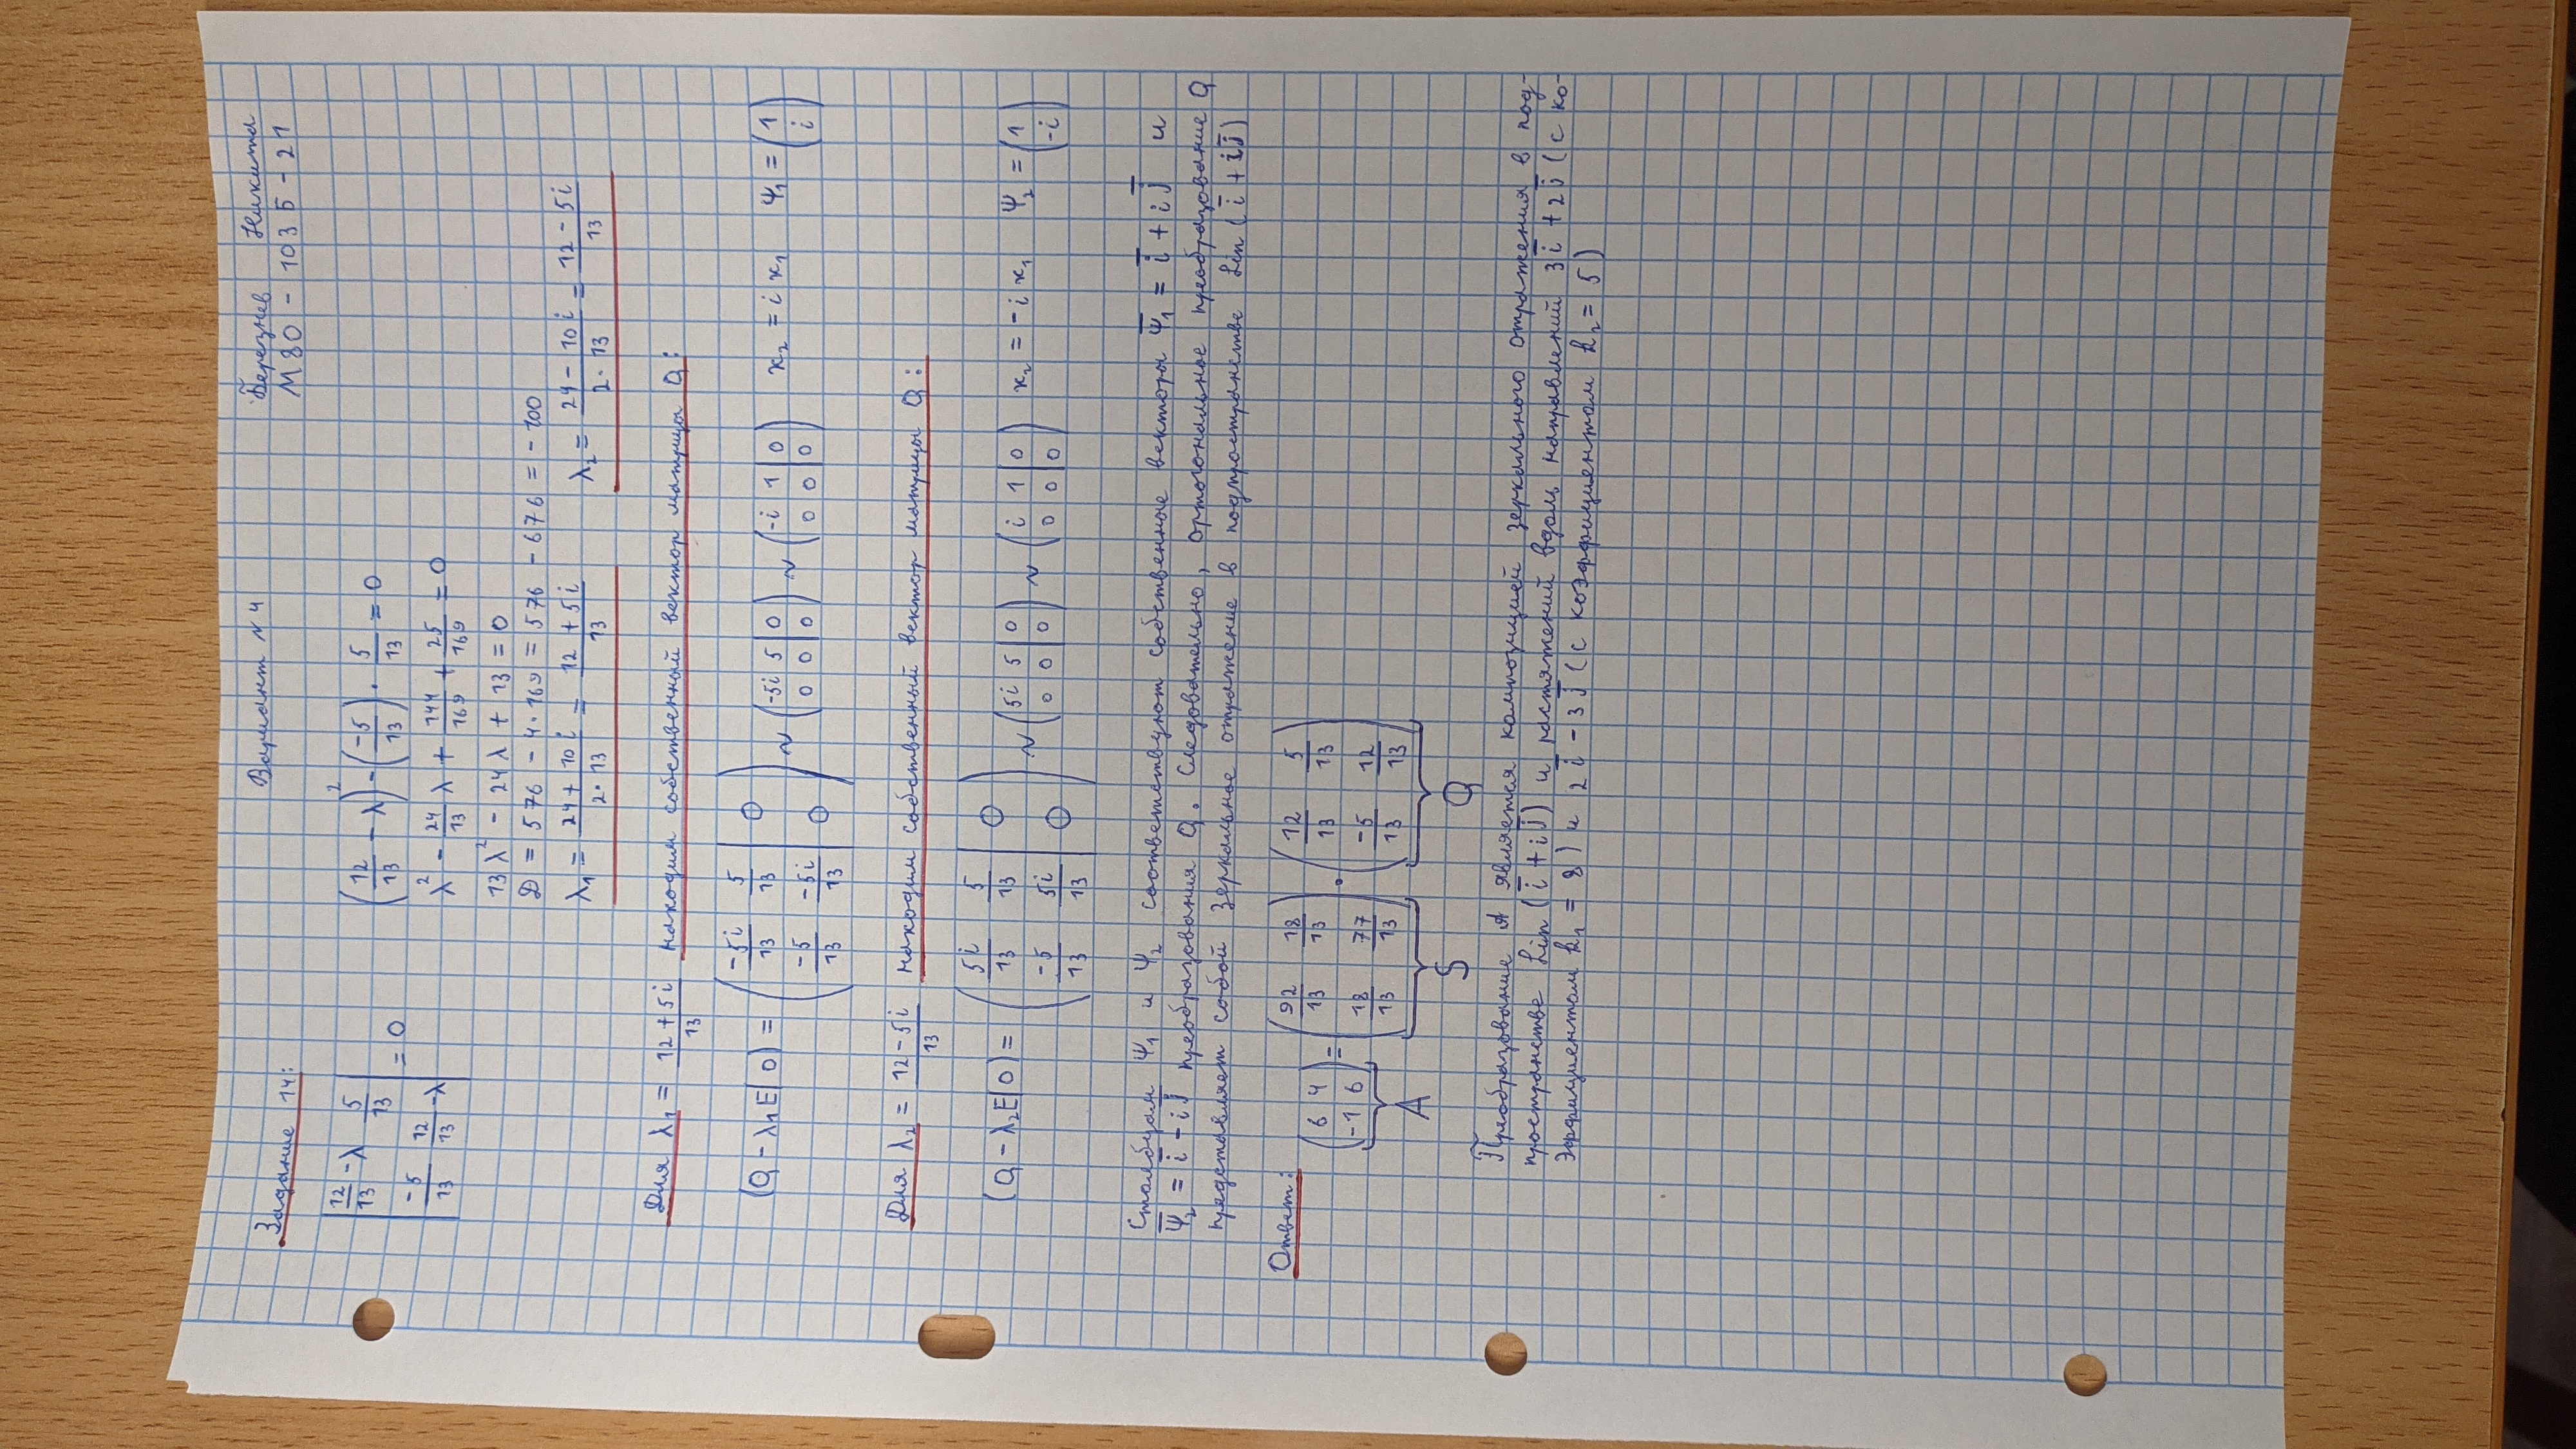 Вариант № 4
Березнев Никита
Задание 14:
М80 - 103Б - 21
| 12/13 - λ   5/13 |
| -5/13   12/13 - λ | = 0
(12/13 - λ)² - (-5/13) · 5/13 = 0
λ² - 24/13 λ + 144/169 + 25/169 = 0
13λ² - 24λ + 13 = 0
D = 576 - 4·169 = 576 - 676 = -100
λ₁ = (24 + 10i)/(2·13) = (12 + 5i)/13   λ₂ = (24 - 10i)/(2·13) = (12 - 5i)/13
Для λ₁ = (12 + 5i)/13 находим собственный вектор матрицы Q:
(Q - λ₁E|0) = (-5i/13  5/13 | 0; -5/13  -5i/13 | 0) ~ (-5i 5 | 0; 0 0 | 0) ~ (-i 1 | 0; 0 0 | 0)   x₂ = i x₁   Ψ₁ = (1; i)
Для λ₂ = (12 - 5i)/13 находим собственный вектор матрицы Q:
(Q - λ₂E|0) = (5i/13  5/13 | 0; -5/13  5i/13 | 0) ~ (5i 5 | 0; 0 0 | 0) ~ (i 1 | 0; 0 0 | 0)   x₂ = -i x₁   Ψ₂ = (1; -i)
Столбцам Ψ₁ и Ψ₂ соответствуют собственные векторы Ψ̅₁ = i̅ + i j̅ и
Ψ̅₂ = i̅ - i j̅ преобразования Q. Следовательно, ортогональное преобразование Q
представляет собой зеркальное отражение в подпространстве Lin (i̅ + i j̅)
Ответ:
(6 4; -1 6) = (92/13  18/13; 18/13  77/13) · (12/13  5/13; -5/13  12/13)
A   S   Q
Преобразование A является композицией зеркального отражения в под-
пространстве Lin (i̅ + i j̅) и растяжений вдоль направлений 3i̅ + 2j̅ (с ко-
эффициентом k₁ = 8) и 2i̅ - 3j̅ (с коэффициентом k₂ = 5)